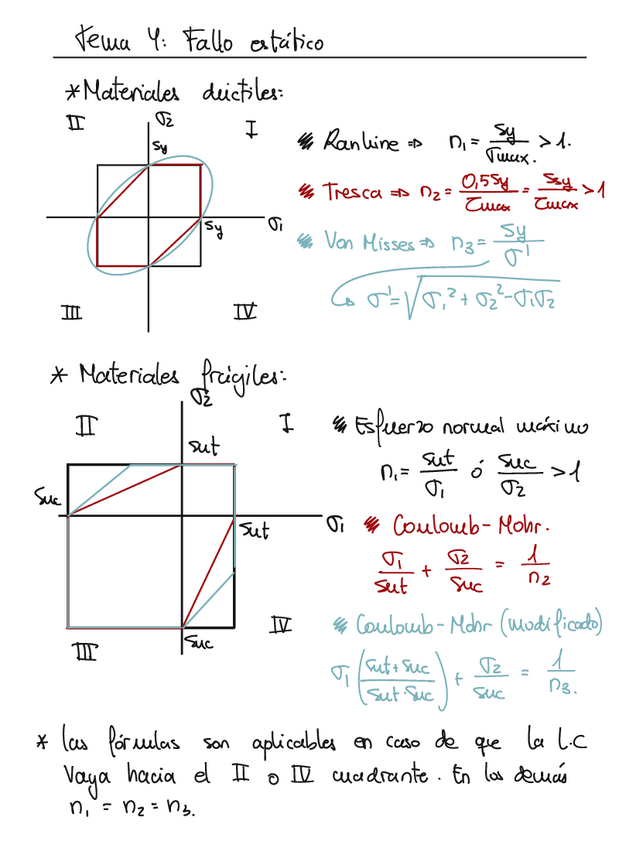 Tema 4: Fallo estático
* Materiales dúctiles:
II
σ2
I
Sy
Sy
σ1
III
IV
Rankine => n1 = Sy/σmax. > 1.
Tresca => n2 = 0,5Sy/τmax = Ssy/τmax > 1
Von Misses => n3 = Sy/σ'
σ' = √(σ1² + σ2² - σ1σ2)
* Materiales frágiles:
σ2
II
I
Sut
Suc
σ1
Sut
IV
III
Suc
Esfuerzo normal máximo
n1 = Sut/σ1 ó Suc/σ2 > 1
Coulomb-Mohr.
σ1/Sut + σ2/Suc = 1/n2
Coulomb-Mohr (modificado)
σ1 (Sut+Suc/Sut·Suc) + σ2/Suc = 1/n3.
* las fórmulas son aplicables en caso de que la L.C
Vaya hacia el II o IV cuadrante. En los demás
n1 = n2 = n3.